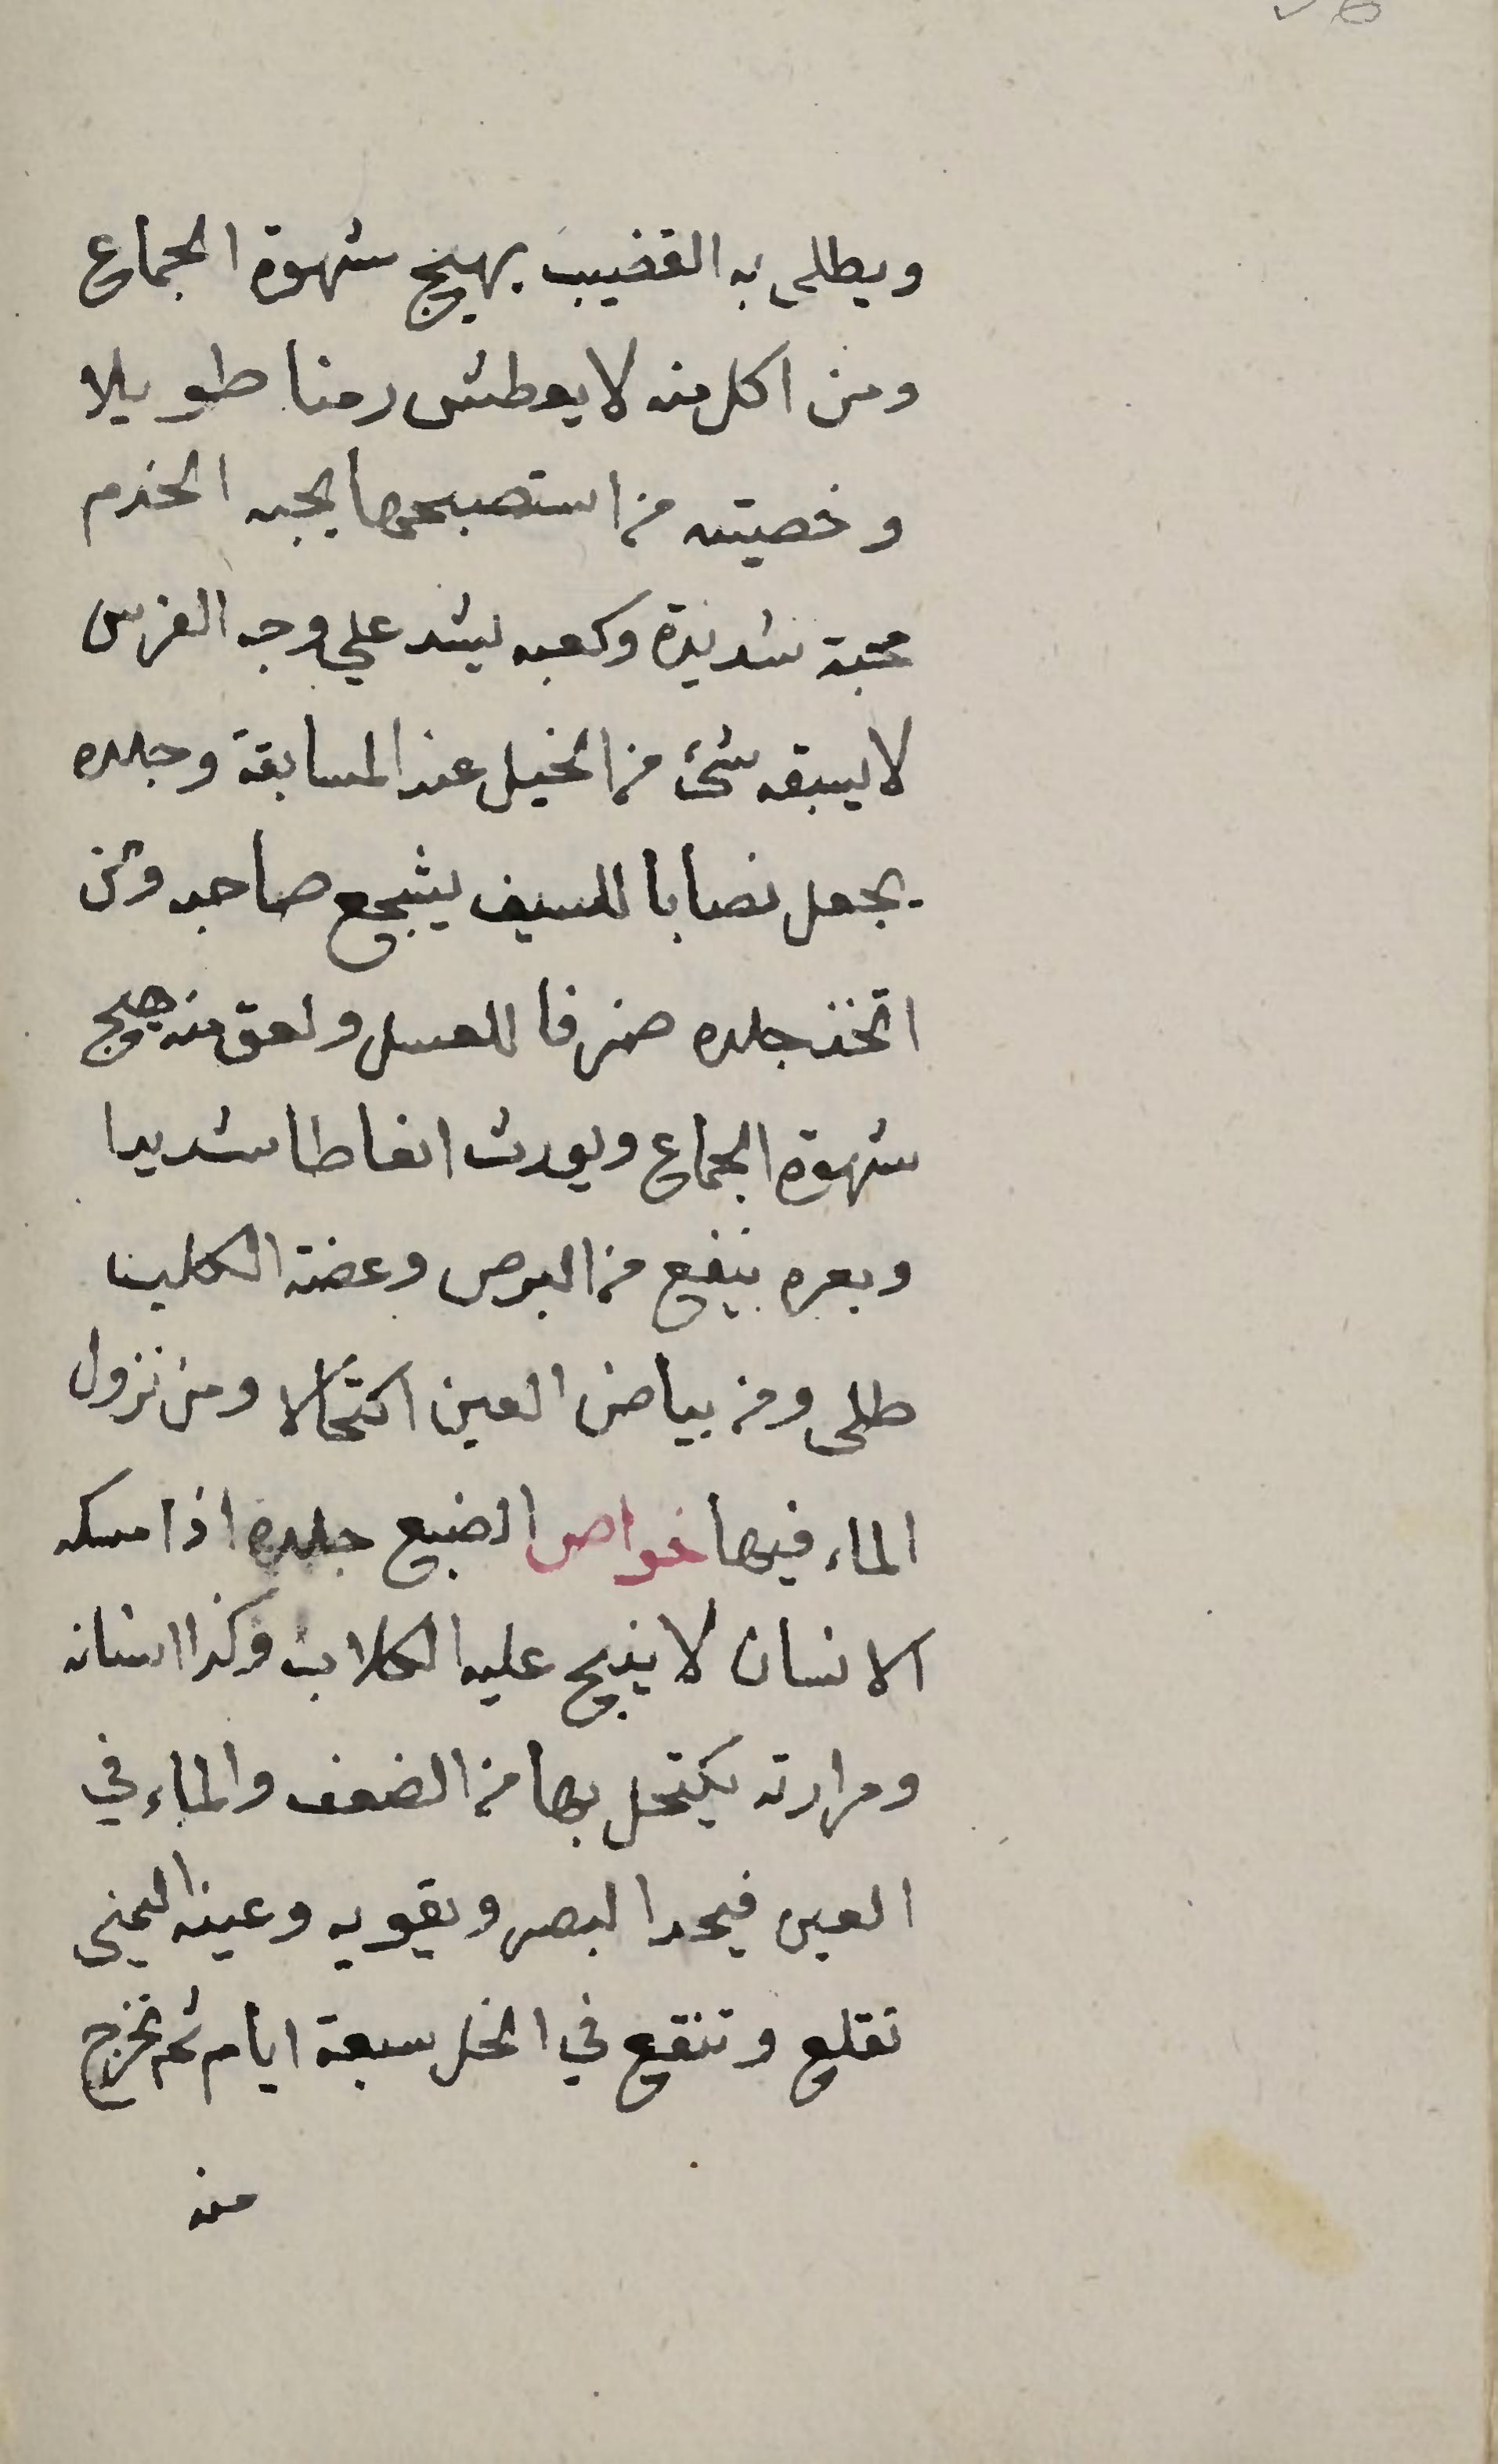 ويطلى به القضيب يهيج شهوة الجماع
ومن اكل منه لا يعطش زمنا طويلا
وخصيته من استصبحها يحبه الخدم
محبة شديدة وكعبه يشد على وجه الفرس
لا يسبقه شئ من الخيل عند المسابقة وجلده
يجعل نصابا للسيف يشجع صاحبه ومن
اتخذ جلده صرفا للعسل ولعق منه هيج
شهوة الجماع ويورث انعاطا شديدا
وبعره ينفع من البرص وعضة الكلب
طلى ومن بياض العين اكتحالا ومن نزول
الماء فيها خواص الضبع جلده اذا مسكه
الانسان لا ينبح عليه الكلاب وكذا اسنانه
ومرارته يكتحل بها من الضعف والماء في
العين فيحد البصر ويقويه وعينه اليمنى
تقلع وتنقع في الخل سبعة ايام ثم تخرج
منه